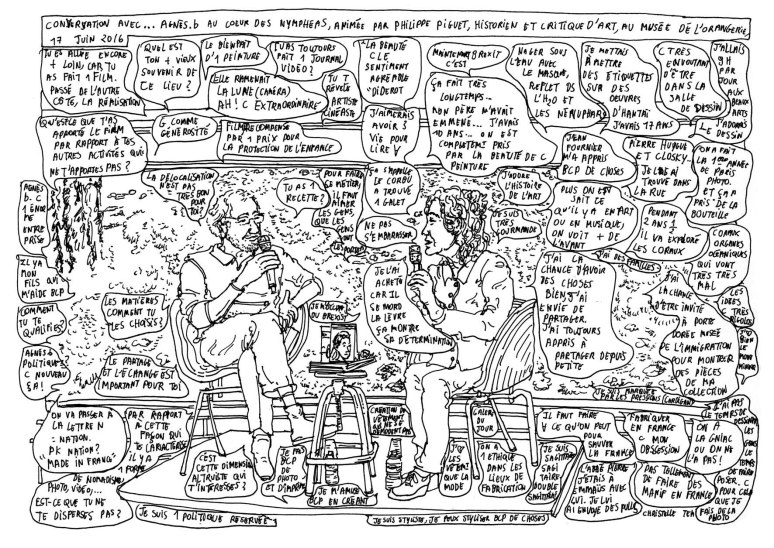 CONVERSATION AVEC... AGNÈS.B AU COEUR DES NYMPHEAS, ANIMÉE PAR PHILIPPE PIGUET, HISTORIEN ET CRITIQUE D'ART, AU MUSÉE DE L'ORANGERIE,
17 JUIN 2016
TU ES ALLÉE ENCORE
+ LOIN, CAR TU
AS FAIT 1 FILM.
PASSÉ DE L'AUTRE
CÔTÉ, LA RÉALISATION
QUEL EST
TON + VIEUX
SOUVENIR DE
CE LIEU ?
LE BIENFAIT
D'1 PEINTURE
TU AS TOUJOURS
FAIT 1 JOURNAL
VIDÉO ?
ELLE RAMENAIT
LA LUNE (CAMÉRA)
AH! C EXTRAORDINAIRE
TU T
RÉVÉLÉ
ARTISTE
CINÉASTE
LA BEAUTÉ
C LE
SENTIMENT
AGRÉABLE
DIDEROT
MAINTENANT BREXIT
C'EST
NAGER SOUS
L'EAU AVEC
LE MASQUE,
REFLET DS
L'H2O ET
LES NÉNUPHARS
JE METTAIS
À METTRE
DES ETIQUETTES
SUR DES
OEUVRES
D'HANTAÏ
J'AVAIS 17 ANS
C TRÈS
ENVOUTANT
D'ÊTRE
DANS LA
SALLE
DE DESSIN
J'ALLAIS
9H
PAR
JOUR
AUX
BEAUX
ARTS
J'ADORAIS
LE DESSIN
QU'EST CE QUE T'AS
APPORTÉ LE FILM
PAR RAPPORT À TES
AUTRES ACTIVITÉS QUI
NE T'APPORTES PAS ?
G COMME
GÉNÉROSITÉ
FILM RÉCOMPENSÉ
PAR 1 PRIX POUR
LA PROTECTION DE L'ENFANCE
J'AIMERAIS
AVOIR 5
VIE POUR
LIRE
ÇA FAIT TRÈS
LONGTEMPS...
MON PÈRE M'AVAIT
EMMENÉ... J'AVAIS
10 ANS... ON EST
COMPLÈTEMT PRIS
PAR LA BEAUTÉ DE C
PEINTURE
JEAN
FOURNIER
M'A APPRIS
BCP DE CHOSES
PIERRE HUYGUE
ET CLOSKY...
JE L'AI
TROUVÉ DANS
LA RUE
ON A FAIT
LA 1ÈRE ANNÉE
DE PARIS
PHOTO.
ET ÇA A
PRIS DE LA
BOUTEILLE
AGNÈS
B. C
1 ÉNOR
ME
ENTRE
PRISE
LA DÉLOCALISATION
N'EST PAS
TRÈS BON
POUR TOI?
TU AS 1
RECETTE?
POUR FAIRE
CE MÉTIER,
IL FAUT
AIMER
LES GENS,
QUE LES
GENS
SONT
ÇA S'APPELLE
LE CORBU
A TROUVÉ
1 GALET
NE PAS
S'EMBARRASSER
J'ADORE
L'HISTOIRE
DE L'ART
JE SUIS
TRÈS
GOURMANDE
PLUS ON EST
SAIT CE
QU'IL Y A EN ART
OU EN MUSIQUE,
ON VOIT + DE
L'AVANT
PENDANT
2 ANS 1/2
IL VA EXPLORER
LES CORAUX
CORAUX
ORGANES
OCÉANIQUES
QUI VONT
TRÈS TRÈS
MAL
IL Y A
MON
FILS QUI
M'AIDE BCP
COMMENT
TU TE
QUALIFIES?
AGNÈS B
POLITIQUE?
C NOUVEAU
ÇA!
LES MATIÈRES
COMMENT TU
LES CHOISIS?
LE PARTAGE
ET L'ÉCHANGE EST
IMPORTANT POUR TOI
JE L'AI
ACHETÉ
CAR IL
SE MORD
LA LÈVRE
ÇA MONTRE
SA DÉTERMINATION
J'AI LA
CHANCE D'AVOIR
DES CHOSES
BIEN, J'AI
ENVIE DE
PARTAGER.
J'AI TOUJOURS
APPRIS À
PARTAGER DEPUIS
PETITE
J'AI DES FAMILLES
J'AI
LA CHANCE
D'ÊTRE
INVITÉ
À PORTE
DORÉE MUSÉE
DE L'IMMIGRATION
POUR MONTRER
DES PIÈCES
DE MA
COLLECTION
LES
IDÉES
C TRÈS
ON VA PASSER À
LA LETTRE N
= NATION.
PK NATION?
"MADE IN FRANCE"
PAR RAPPORT
À CETTE
FAÇON QUI
TE CARACTÉRISE
IL Y A
1 FORME
DE NOMADISME,
PHOTO, VIDÉO...
EST-CE QUE TU NE
TE DISPERSES PAS?
C'EST
CETTE DIMENSION
ALTRUISTE QUI
T'INTÉRESSES?
JE FAIS
BCP
DE
PHOTO
ET D'IMAGES
JE M'AMUSE
BCP EN CRÉANT
CRÉATION DE
VÊTEMENT
QUI NE SE
DÉMODENT PAS
GALERIE
DU
JOUR
ON A
1 ETHIQUE
DANS LES
LIEUX DE
FABRICATION
JE SUIS
SAGITTAIRE
DOUBLE
SAGITTAIRE
IL FAUT FAIRE
CE QU'ON PEUT
POUR
SAUVER LA
FRANCE
L'ABBÉ PIERRE
J'ÉTAIS À
EMMAÜS AVEC
LUI. JE LUI
AI ENVOYÉ DES PULLS
FABRIQUER
EN FRANCE
C MON
OBSESSION
PAS TELLEMENT
DE FAIRE DES
MANIF EN FRANCE
CHRISTELLE TEA
ON A
LA GNIAC
OU ON NE
L'A PAS!
JE SUIS 1 POLITIQUE RÉSERVÉE
JE SUIS STYLISTE, JE PEUX STYLISER BCP DE CHOSES